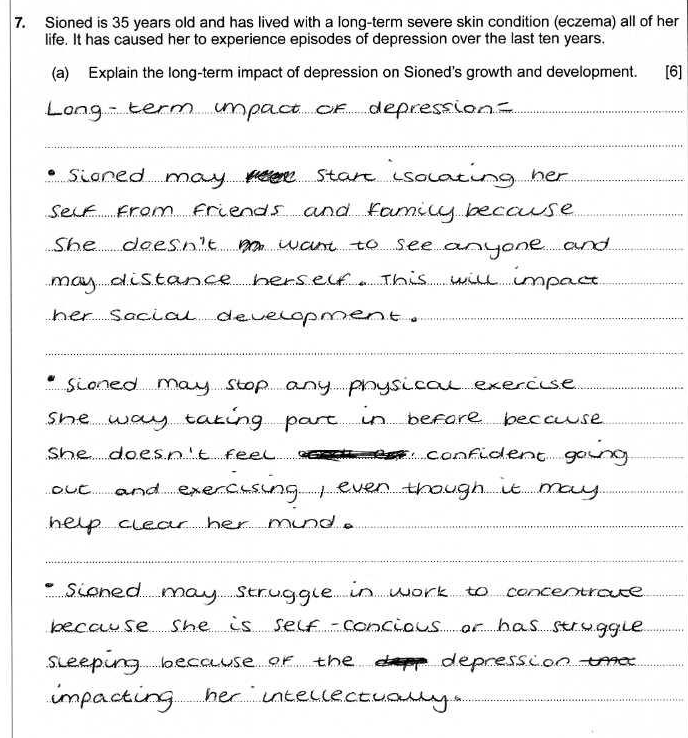 7. Sioned is 35 years old and has lived with a long-term severe skin condition (eczema) all of her
life. It has caused her to experience episodes of depression over the last ten years.
(a) Explain the long-term impact of depression on Sioned's growth and development. [6]
Long-term impact of depression=
• Sioned may start isolating her
self from friends and family because
She doesn't want to see anyone and
may distance herself. This will impact
her social development.
• Sioned may stop any physical exercise
She way taking part in before because
She doesn't feel confident going
out and exercising, even though it may
help clear her mind.
• Sioned may struggle in work to concentrate
because she is self-concious or has struggle
sleeping because of the depression
impacting her intellectually.